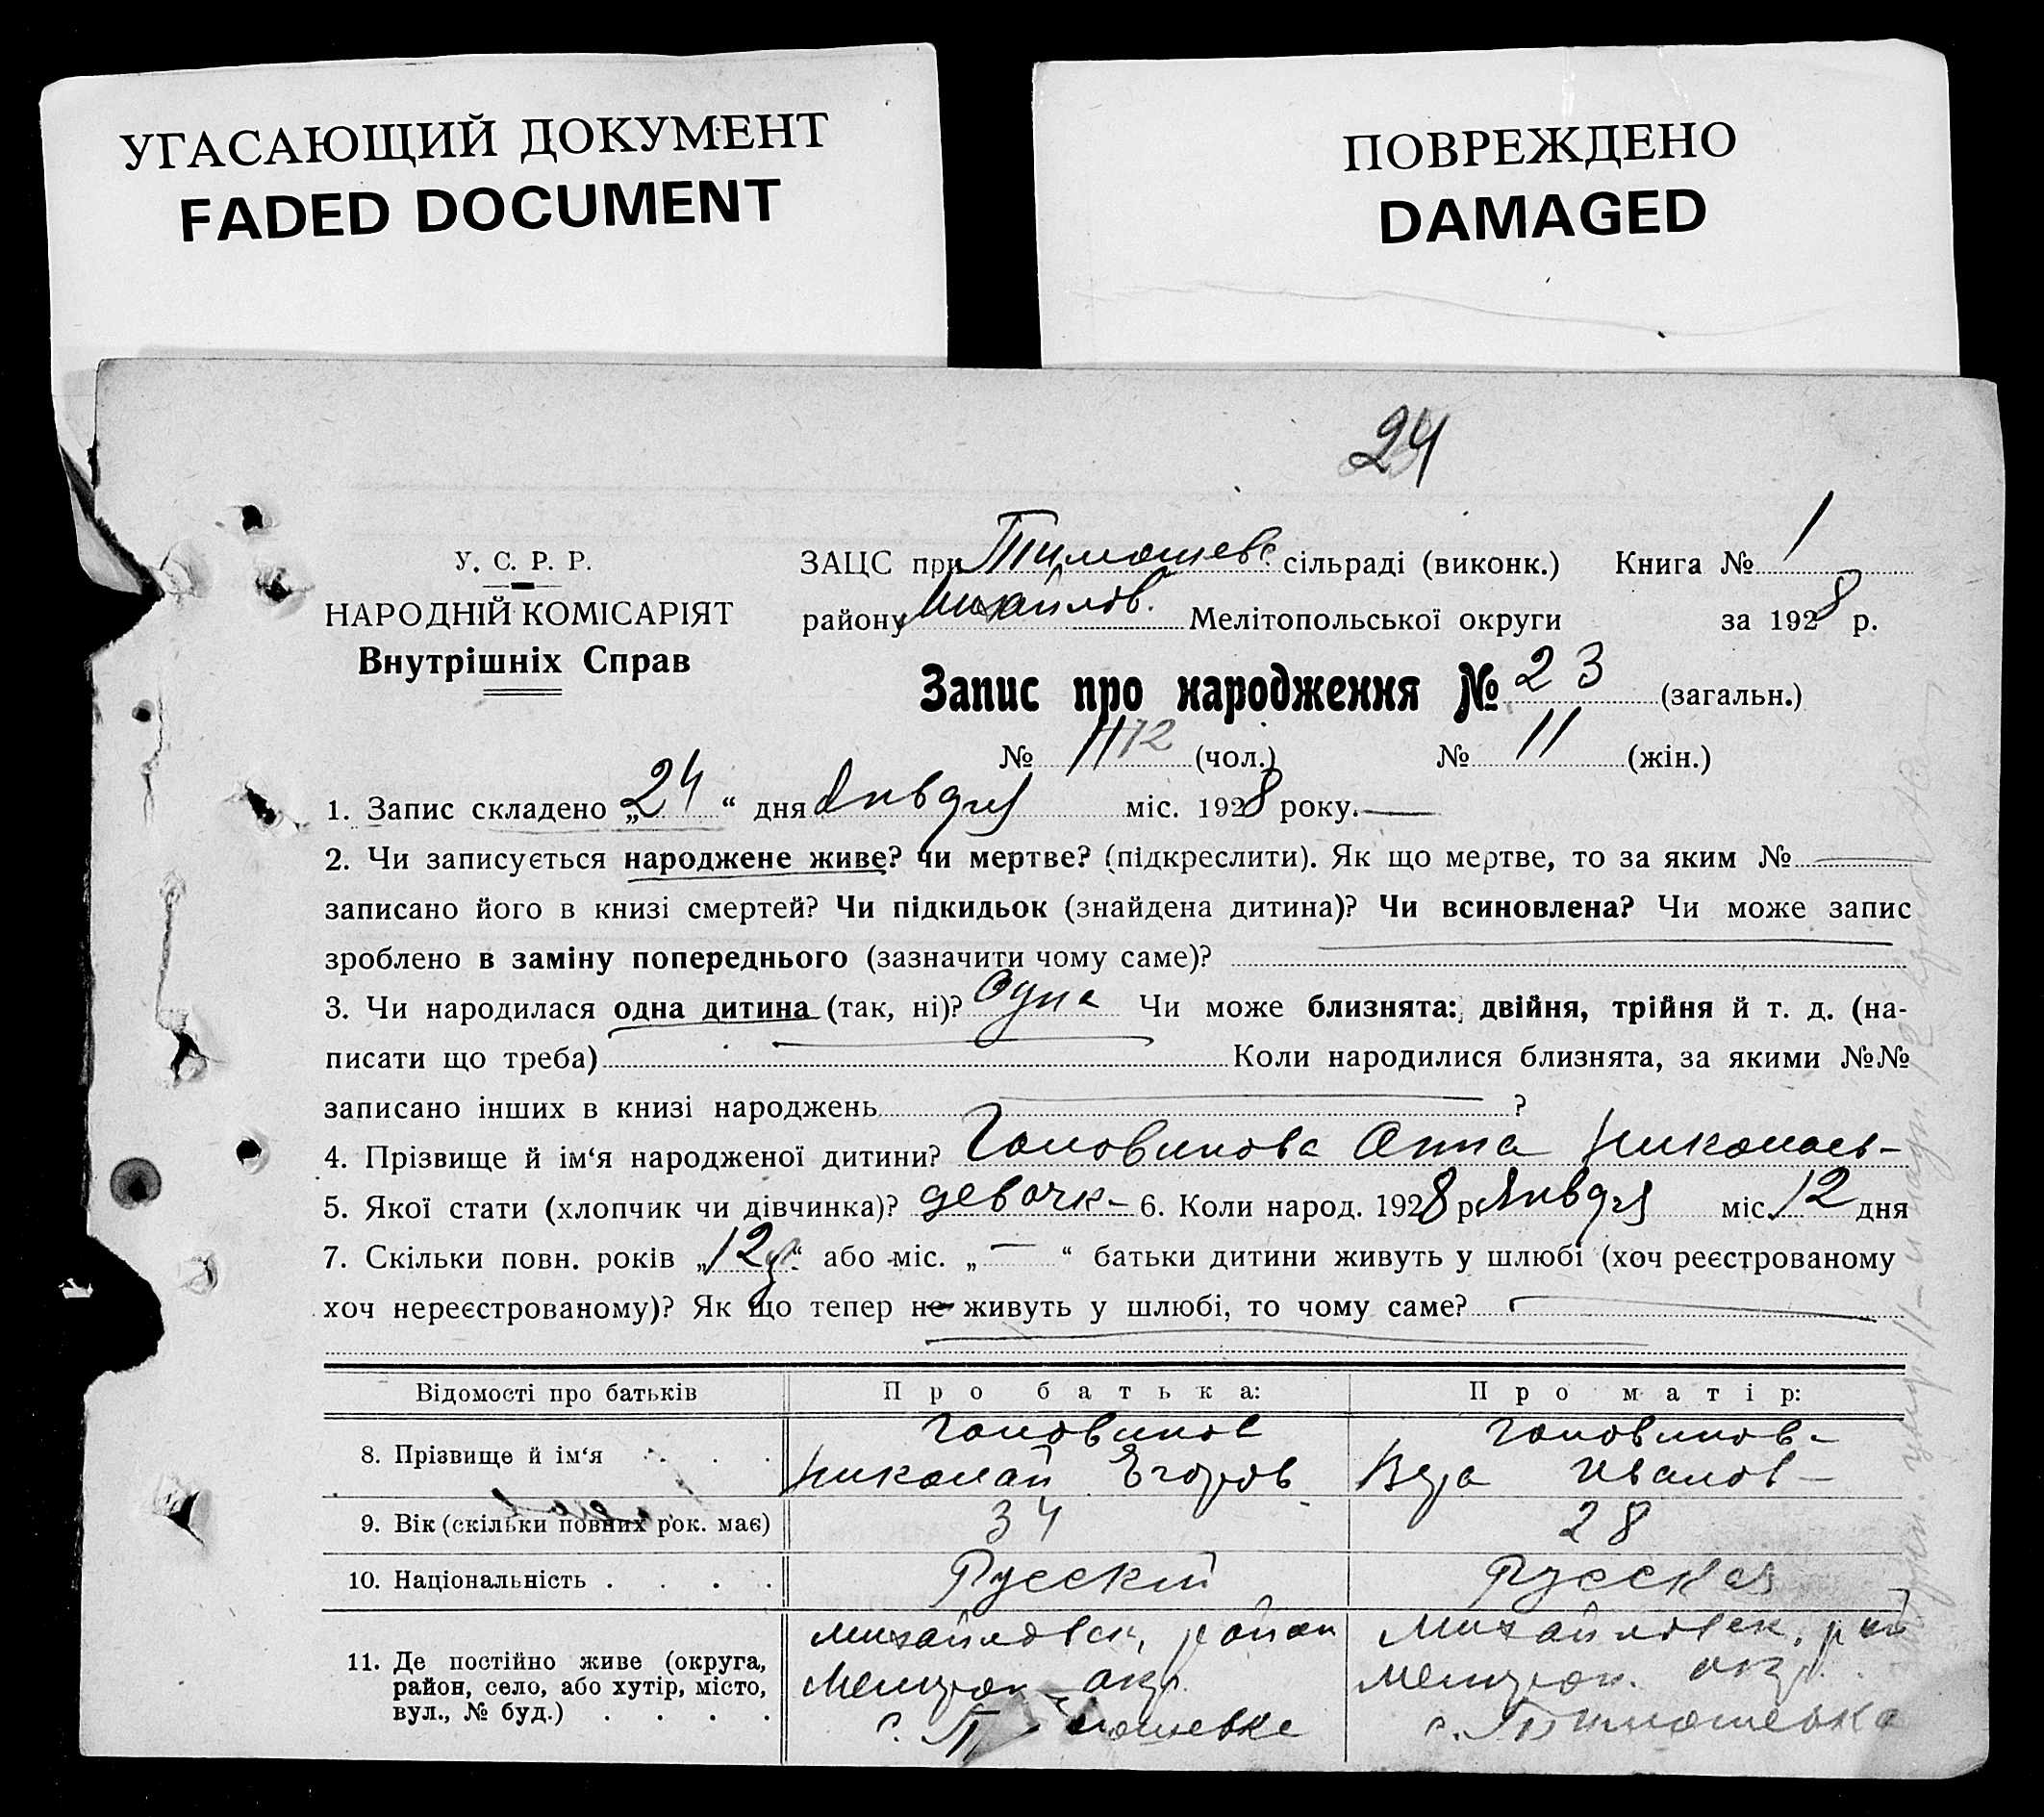 УГАСАЮЩИЙ ДОКУМЕНТ
FADED DOCUMENT
ПОВРЕЖДЕНО
DAMAGED
24
У. С. Р. Р.
НАРОДНІЙ КОМІСАРІЯТ
Внутрішніх Справ
ЗАЦС при Тимошевс. сільраді (виконк.) Книга № 1
району Михайлов. Мелітопольської округи за 1928 р.
Запис про народження № 23 (загальн.)
№ 11 12 (чол.) № 11 (жін.)
1. Запис складено „24“ дня Января міс. 1928 року.
2. Чи записується народжене живе? чи мертве? (підкреслити). Як що мертве, то за яким №
записано його в книзі смертей? Чи підкидьок (знайдена дитина)? Чи всиновлена? Чи може запис
зроблено в заміну попереднього (зазначити чому саме)?
3. Чи народилася одна дитина (так, ні)? Одна Чи може близнята: двійня, трійня й т. д. (на-
писати що треба) Коли народилися близнята, за якими №№
записано інших в книзі народжень ?
4. Прізвище й ім‘я народженої дитини? Головинова Анна Николаев-
5. Якої стати (хлопчик чи дівчинка)? девочк- 6. Коли народ. 1928 р. Января міс. 12 дня
7. Скільки повн. років „12“ або міс. „—“ батьки дитини живуть у шлюбі (хоч реєстрованому
хоч нереєстрованому)? Як що тепер не живуть у шлюбі, то чому саме?
Відомості про батьків Про батька: Про матір:
8. Прізвище й ім‘я . . .
Головинов
Николай Егоров
Головинов-
Вера Иванов-
9. Вік (скільки повних рок. має) 34 28
10. Національність . . . . Русский Русская
11. Де постійно живе (округа,
район, село, або хутір, місто,
вул., № буд.) . . . .
Михайловск. район
Мелитоп. окр.
с. Тимошевке
Михайловск. рай
Мелитоп. окр.
с. Тимошевка